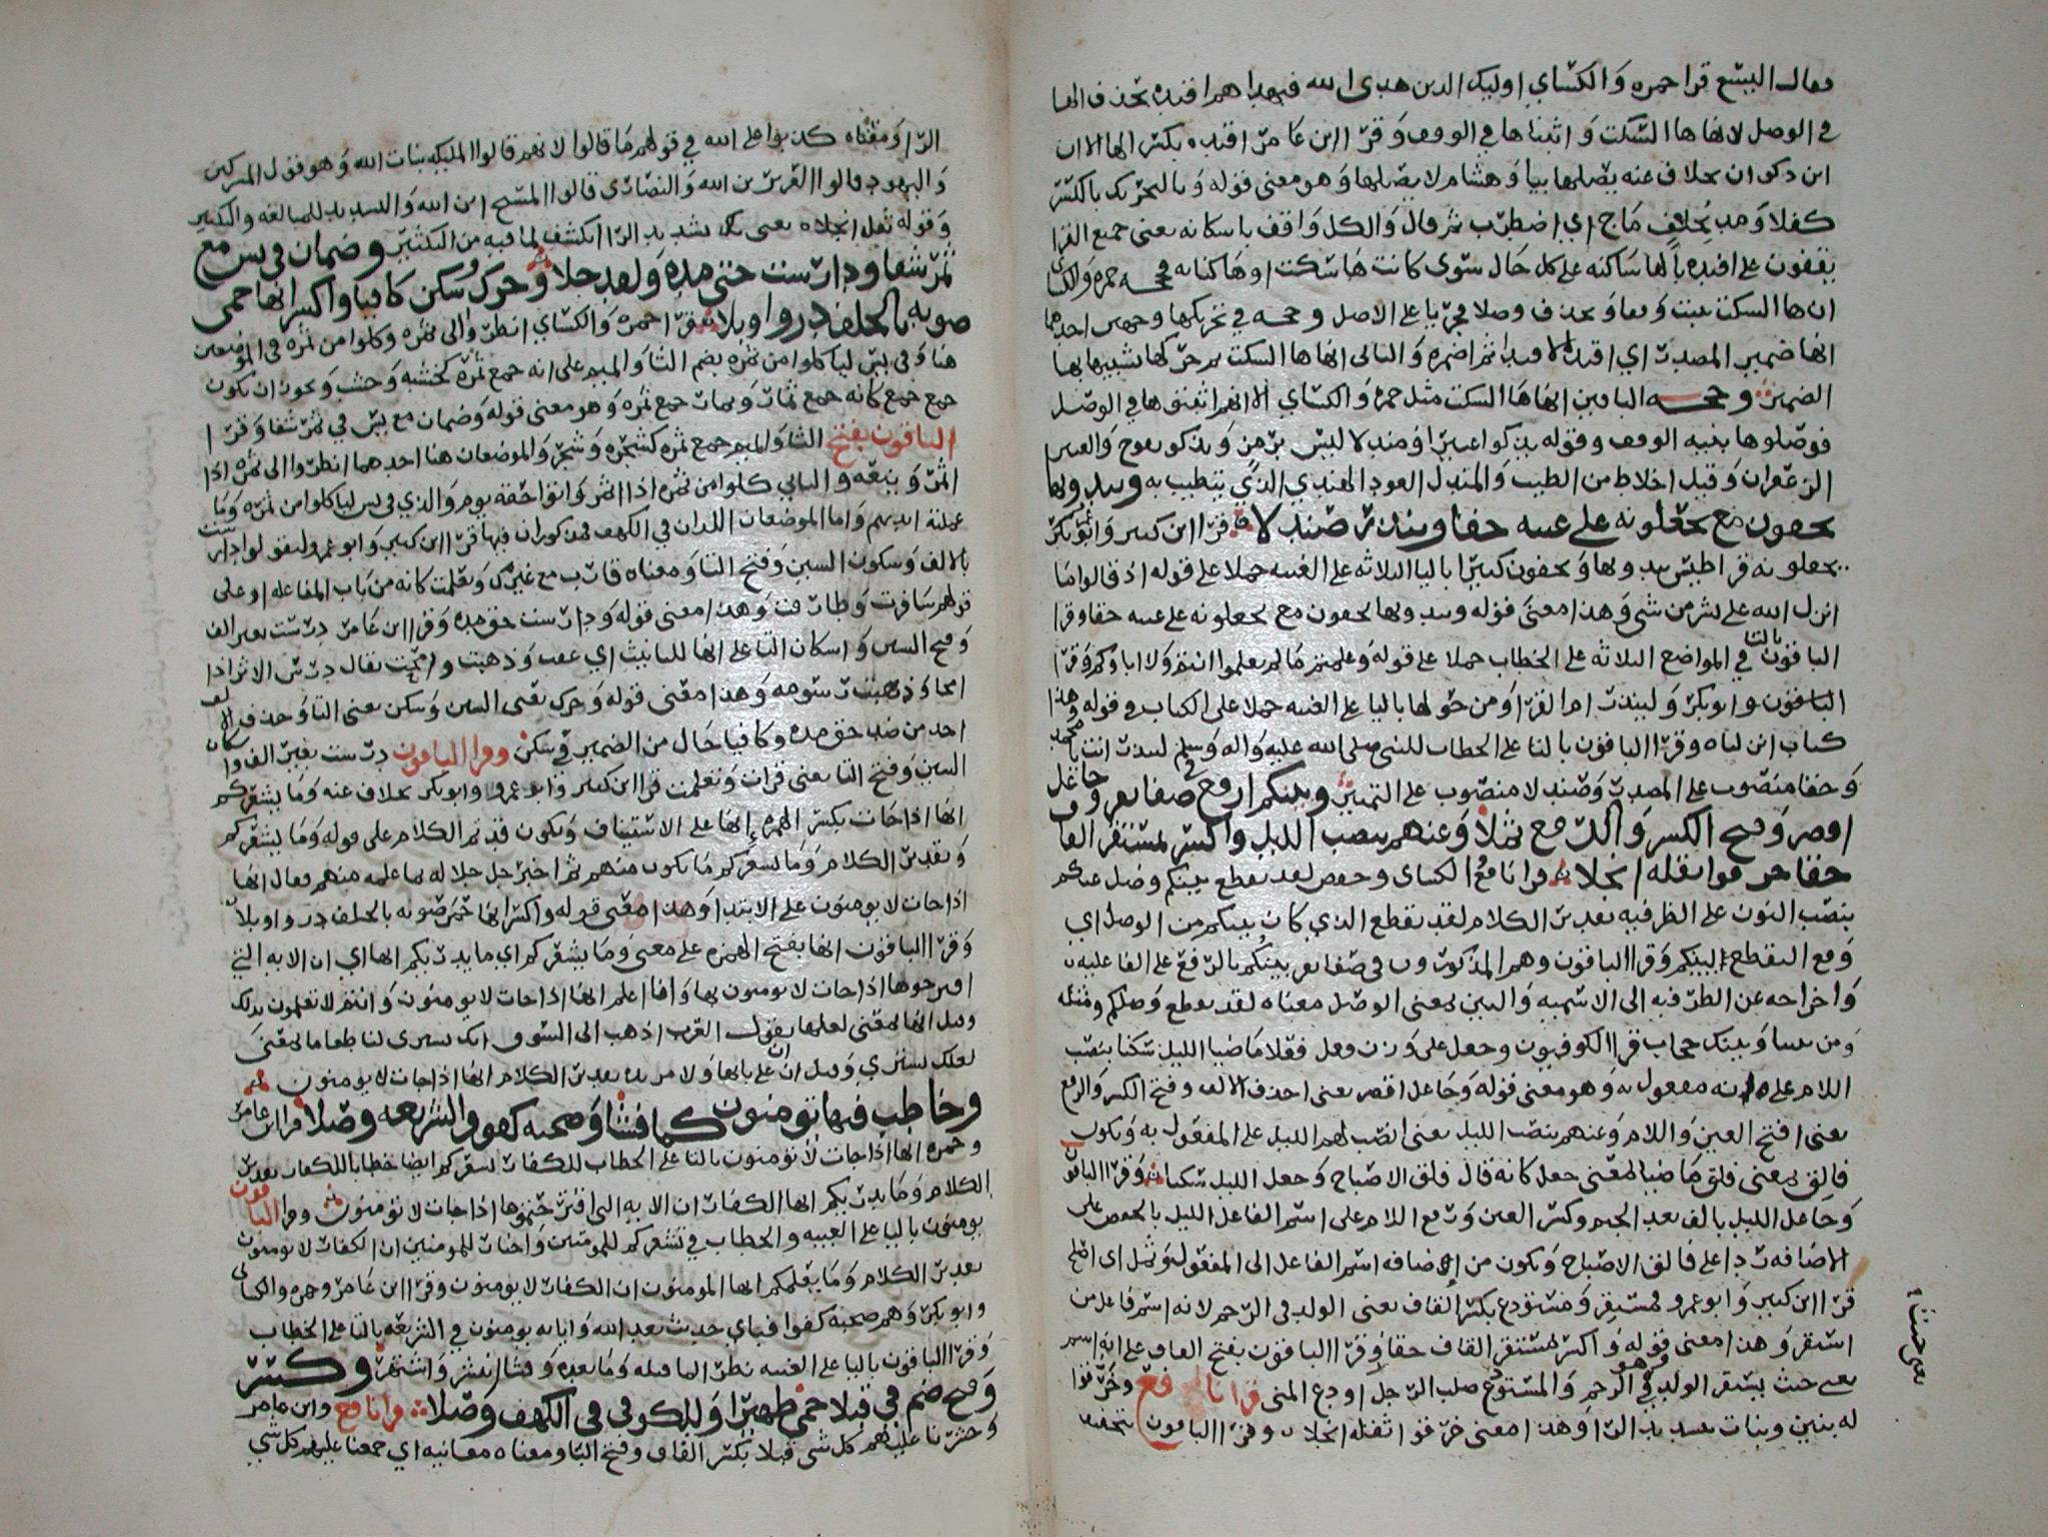 فقال اليسع قرا حمزه وَالكسَاي اوليك الدين هدى الله فبهداهم اقتده بحذف الها
في الوصل لانها ها السّكت وَ اثباتها في الوقف وَقرّا ابن عَامرٓ اقتده بكسٓر الها الا ان
ابن دكوان بخلاف عنه يصٓلها بيا وَهشام لا يصٓلها وَهو معنى قوله وَ بالتحرٓيك بالكسٓر
كفلا وَمد بخلاف مَاج اي اضطرٓب ثم قال وَالكل وَاقف باسكانه يعنى جميع القرا
يقفون على اقتده بالها سَاكنه على كل حَال سٓوى كانت هَا سٓكت او هَا كنايه فحجه حمزه وَالكساى
ان ها السكت تثبت وَقفا وَ تحذف وصلا فجرٓيا على الاصل وحجه في تحريكها وجهين احدهما
انها ضمير المصدر اي اقتد الاقتدا ثم اضمره وَالثانى انها ها السكت ثم حرٓكها تشبيها بها
الضمير وحجه الباقين انها هَا السكت مثل حمزه وَالكسٓاي الا انهم اثبتوها في الوصٓل
فوصٓلوها بنيه الوقف وقوله يذكوا عبيرا وَمندلا ليسٓ برٓمز وَيذكو يفوح وَالعبير
الزعفران وَقيل اخلاط من الطيب وَالمندل العود الهندي الذي يتطيب به وتبدونها
تخفون مع تجعلونه على غيبه حقا وينذر صندلا قرا ابن كثير وَابو بكرٓ
يجعلونه قراطيسٓ يبدونها وَ يخفون كثيرا باليا الثلاثه على الغيبه حملا على قوله اذ قالوا مَا
انزل الله على بشر من شي وَهذا معنى قوله وتبدونها تخفون مع تجعلونه على غيبه حقا وقرا
الباقون بالتا في المواضع الثلاثه على الخطاب حملا على قوله وَعلمتم مَا لم تعلموا انتم وَلا اباوكم وَقرٓا
وابو بكرٓ وَلينذرٓ ام القرٓا وَمن حولها باليا على الغيبه حملا على الكتاب في قوله وَهذا
كتاب انزلناه وقرٓا الباقون بالتا على الخطاب للنبى صلى الله عليه وَاله وَسلم لتنذرٓ انت يا محمد
وَحقا منصٓوب على المصدرٓ وَصٓندلا منصٓوب على التمييز وبينكم ارفع في صفا نفر وجاعل
اقصر وَفتح الكسر وَالرفع ثملا وَعنهم بنصب الليل واكسر بمستقر القاف
حقا خرقوا ثقله انجلا قرا نافع الكساى وحفص لقد تقطع بينكم وضل عنكم
بنصٓب النون على الظرفيه بقدير الكلام لقد تقطع الذي كان بينكم من الوصل اي
وَقع التقطع بينكم وَقرا الباقون وهم المذكورٓون في صٓفا نفر بينكم بالرٓفع على الفاعليه
وَاخراجه عن الظرٓفيه الى الاسميه وَالبين بمعنى الوصٓل معناه لقد تقطع وَصلكم ومثله
وَمن بيننا وَبينك حجاب قرا الكوفيون وجعل على وَزن فعل فعلا مَاضيا الليل سٓكنا بنصٓب
اللام على انه مفعول به وَهو معنى قوله وَجَاعل اقصر يعنى احذف الالف وفتح الكسر وَالرفع
يعنى افتح العين وَاللام وَعنهم بنصٓب الليل يعنى انصٓب لهم الليل على المفعول به وَيكون
فالق بمعنى فلق مَاضيا بمعنى جعل كانه قال فلق الاصباح وَجعل الليل سٓكنا وَقرٓا الباقون
وَجاعل الليل بالف بعد الجيم وكسٓر العين وَرفع اللام على اسم الفاعل الليل بالخفض على
الاضَافه رٓدا على فالق الاصٓباح وَيكون من اضافه اسم الفاعل الى المفعول وَثمل اى اصلح
قرٓا ابن كثير وَابو عمرو فمستقر وَمستودع بكسٓر القاف يعنى الولد في الرٓحم لانه اسم فاعل من
استقر وَهذا معنى قوله وَاكسر بمستقر القاف حقا وَقرٓا الباقون بفتح القاف على انه اسم
يعنى حيث يستقر الولد وَهو في الرحم وَالمستودع صلب الرٓجل اودع المنى قرا نافع وخرّقوا
له بنين وبنات بتشديد الرٓا وَهذا معنى خرقوا ثقله انجلا وقرٓا الباقون بتخفيف
يعنى حيث
الرٓا وَمعناه كذبوا على الله في قولهم مَا قالوا لانهم قالوا الملايكه بنات الله وَهو قول المشركين
وَاليهود قالوا العزيرٓ بن الله وَالنصَارٓى قالوا المسٓيح ابن الله وَالتشديد للمبالغه والتكثير
وَقوله ثقله انجلا يعنى بتشديد الرٓا انكشف لما فيه من التكثير وضمان في يس مع
ثمرٓ شفا ودارٓست حق مده وَلقد حلا وَحرك وسكن كافيا واكسر انها حمى
صوبه بالخلف درٓ واوبلا قرٓا حمزه وَالكسٓاي انظرٓوا الى ثمره وكلوا من ثمره في الموضعين
هنا وَفي يسٓ لياكلوا من ثمره بضم الثا وَالميم على انه جمع ثمٓره كخشبه وَخشب وَيجوز ان يكون
جمع جمع كانه جمع ثمارٓ وَثمارٓ جمع ثمره وَهو معنى قوله وَضمان مع يسٓ في ثمٓر شفا وَقرٓا
الباقون بفتح الثا وَالميم جمع ثمره كشجٓره وَشجٓر وَالموضعان هنا احدهما انظرٓوا الى ثمره اذا
اثمٓر وَينعه والثاني كلوا من ثمره اذا اثمرٓ وَاتوا حقه يوم وَالذي في يس لياكلوا من ثمرٓه وَمَا
عملته ايديهم وَاما الموضعان اللذان في الكهف فمذكوران فيها قرٓا ابن كثير وَابو عمرو وليقولوا دارست
بالالف وَسكون السين وَفتح التا وَمعناه قارٓيت مع غيرٓك وَتعلمت كانه من باب المفاعله وعلى
قولهم سَافرت وَطارقت وَهذا معنى قوله وَدارٓست حق مده وَقرٓا ابن عَامرٓ درٓسٓت بغير الف
وَفتح السين وَاسكان التا على انها للتانيث اي عفت وَذهبت وَامحت يقال درٓسٓ الاثر اذا
امحا وَذهبت رٓسومه وَهذا معنى قوله وَحرك يعنى السين وَسٓكن يعنى التا وَحذف الالف
اخذ من ضد حق مده وكافيا حَال من الضمير في سٓكن وقرا الباقون درٓست بغير الف واسكان
السين وَفتح التا يعنى قرات وَتعلمت قرا ابن كثير وابو عمرو وابو بكر بخلاف عنه وَمَا يشعركم
انها اذا جَات بكسر الهمزه انها على الاستيناف وَيكون قد تم الكلام على قوله وَمَا يشعركم
وَتقديرٓ الكلام وَمَا يشعركم مَا يكون منهم ثم اخبر جل جلاله بما علمه منهم فقال انها
اذا جات لا يومنون على الابتدا وَهذا معنى قوله واكسر انها حمى صوبه بالخلف درٓ واوبلا
وَقرٓا الباقون انها بفتح الهمزه على معنى وَمَا يشعركم اي ما يدرٓيكم انها اي ان الايه التي
اقترحوها اذا جات لا يومنون بها وَانا اعلم انها اذا جات لا يومنون وَانتم لا تعلمون بذلك
وقيل انها بمعنى لعلها يقول العرب اذهب الى السوق انك تشترى لنا طعاما بمعنى
لعلك تشترى وَقيل ان على بابها وَلا مزيده بقدير الكلام انها اذا جات لا يومنون
وخاطب فيها تومنون كما فشا وَصحبه كفو في الشريعه وصّلا قرا ابن عامرٓ
وحمزه انها اذا جات لا تومنون بالتا على الخطاب للكفارٓ يشعركم ايضا خطابا للكفار بقدير
الكلام وَمَا يدرٓيكم ايها الكفارٓ ان الايه التى اقترحتموها اذا جات لا تومنون وقرا الباقون
يومنون باليا على الغيبه والخطاب في يشعركم للمومنين وَاخبار للمومنين ان الكفارٓ لا يومنون
بقدير الكلام وَمَا يعلمكم ايها المومنون ان الكفارٓ لا يومنون وقرٓا ابن عَامرٓ وحمزه والكساى
وابو بكرٓ وَهم صحبه كفو فباي حديث بعد الله وَاياته يومنون في الشرٓيعه بالتا على الخطاب
وَقرٓا الباقون باليا على الغيبه نظرٓا لما قبله وَمَا بعده وَفشا انتشٓر وَاشتهر وكسٓر
وَفتح ضم في قبلا حمى ظهيرا وَللكوفي في الكهف وَصّلا قرا نافع وابن عامر
وحشرٓنا عليهم كل شى قبلا بكسٓر القاف وفتح البا ومعناه معاينه اي جمعنا عليهم كل شي